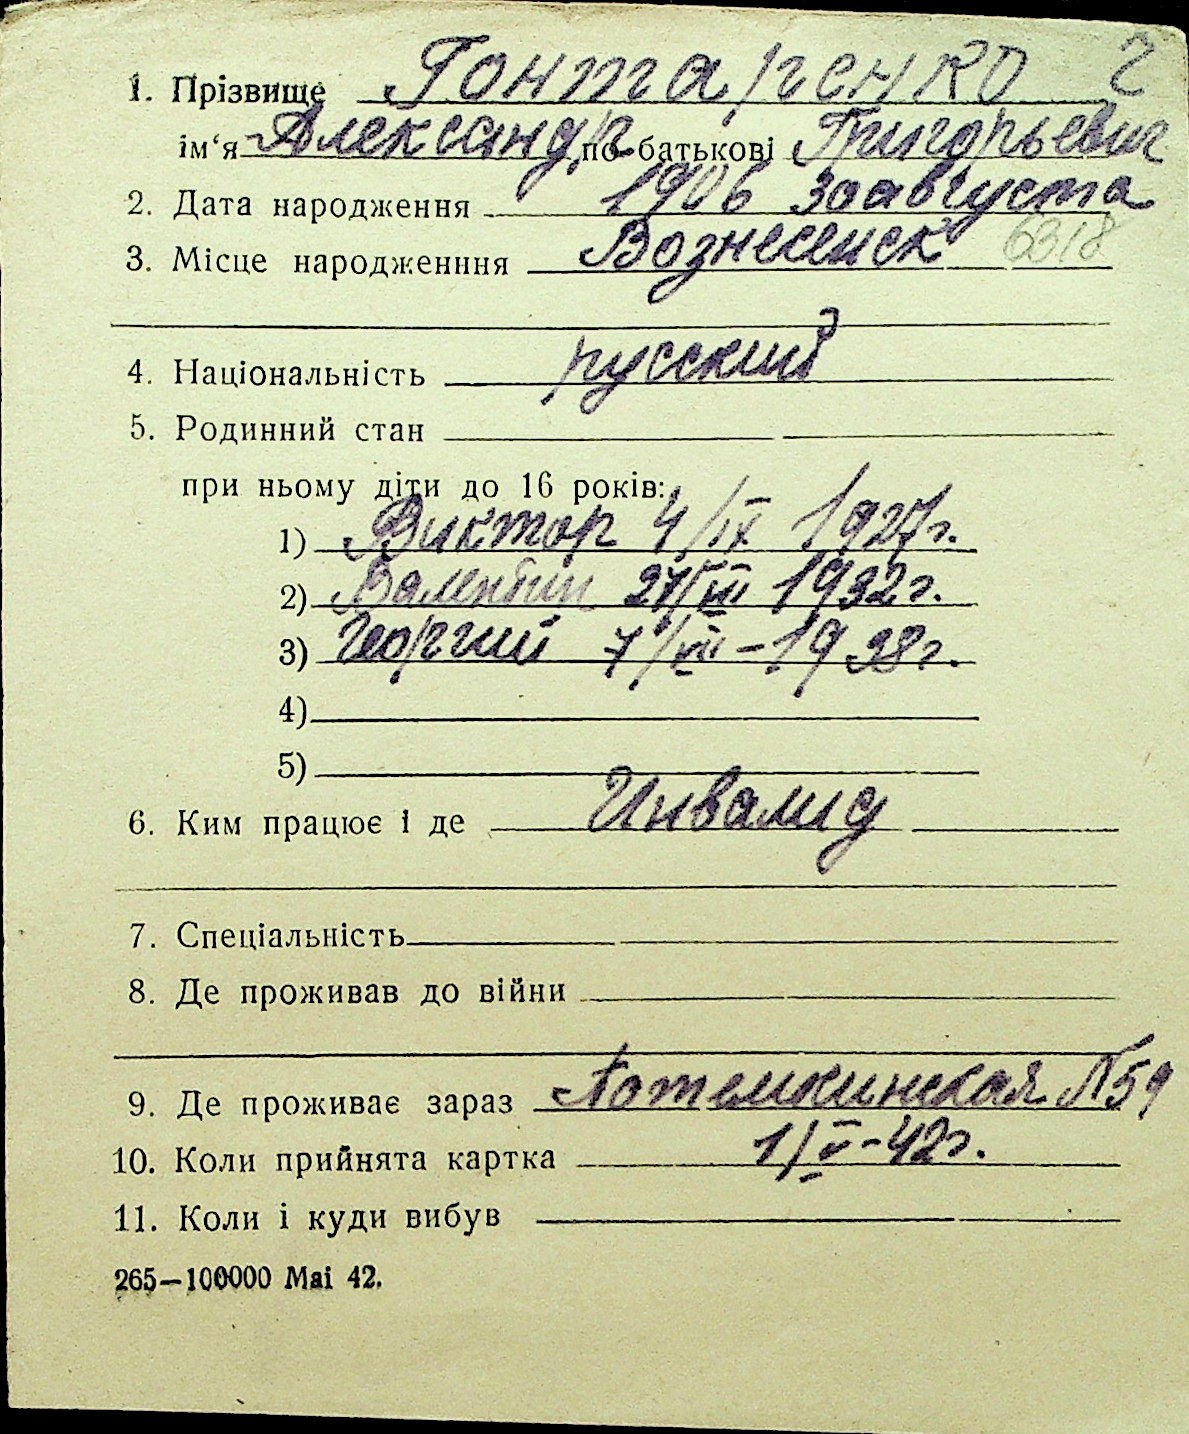 1. Прізвище Гонтаренко 2
ім‘я Александр по батькові Григорьевич
2. Дата народження 1906 30 августа
3. Місце народженння Вознесенск 6318
4. Національність русский
5. Родинний стан
при ньому діти до 16 років:
1) Виктор 4/IX 1927г.
2) Валентин 27/VIII 1932г.
3) Георгий 7/VIII-1938г.
4)
5)
6. Ким працює і де Инвалид
7. Спеціальність
8. Де проживав до війни
9. Де проживає зараз Потемкинская №59
10. Коли прийнята картка 1/V-42г.
11. Коли і куди вибув
265—100000 Mai 42.